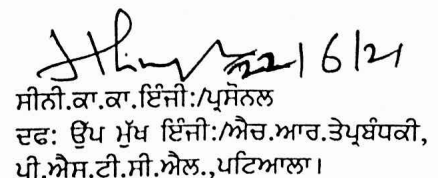 22/6/21
ਸੀਨੀ.ਕਾ.ਕਾ.ਇੰਜੀ:/ਪ੍ਰਸੋਨਲ
ਦਫ: ਉੱਪ ਮੁੱਖ ਇੰਜੀ:/ਐਚ.ਆਰ.ਤੇਪ੍ਰਬੰਧਕੀ,
ਪੀ.ਐਸ.ਟੀ.ਸੀ.ਐਲ.,ਪਟਿਆਲਾ।